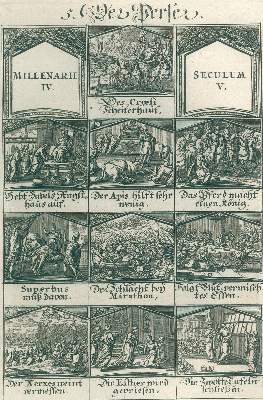 5. Der Perser.
MILLENARII
IV.
SECULUM
V.
Des Crœsi
Scheiterhauf.
Hebt Babels Angst,
haus auf.
Der Apis hilft sehr
wenig.
Das Pferd macht
einen König.
Superbus
muß davon.
Die Schlacht bey
Marathon,
Folgt Blut, vermisch
tes Essen.
Der Xerxes weint
vermessen.
Die Esther wird
gepriesen.
Die Zwölf Tafeln